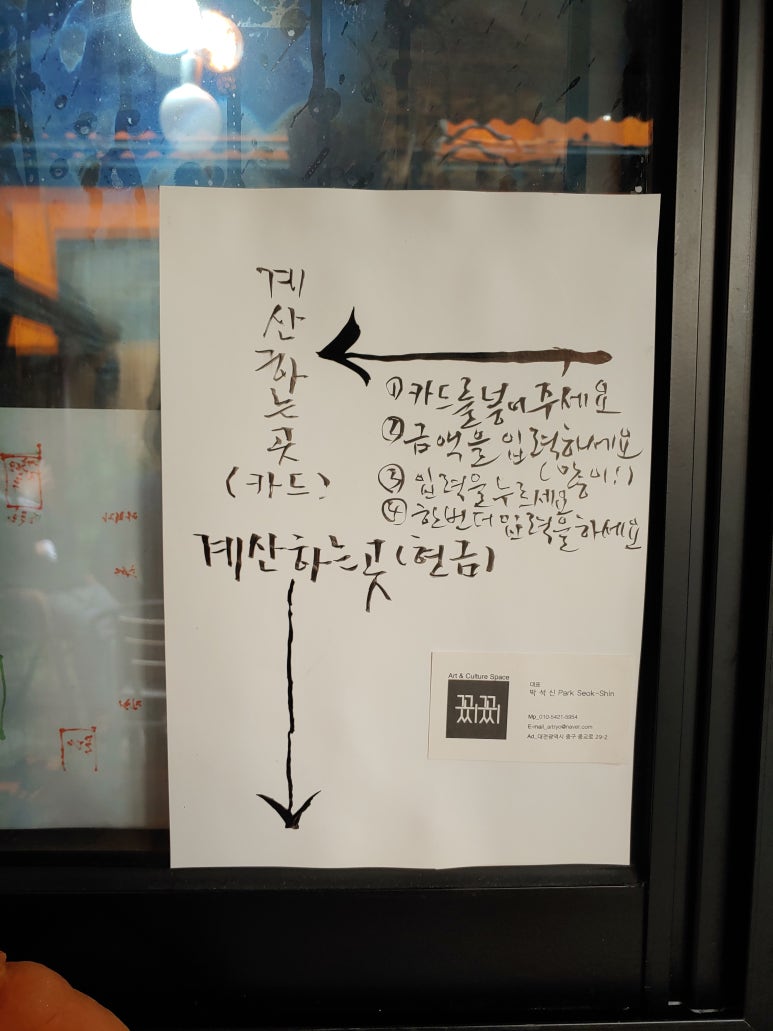 계산하는곳
(카드)
①카드를넣어주세요
②금액을입력하세요
③입력을누르세요
④한번더입력을하세요
계산하는곳(현금)
Art & Culture Space
대표
박 석 신 Park Seok-Shin
Mp_010-5421-5954
E-mail_artryo@naver.com
Ad_대전광역시 중구 중교로 29-2